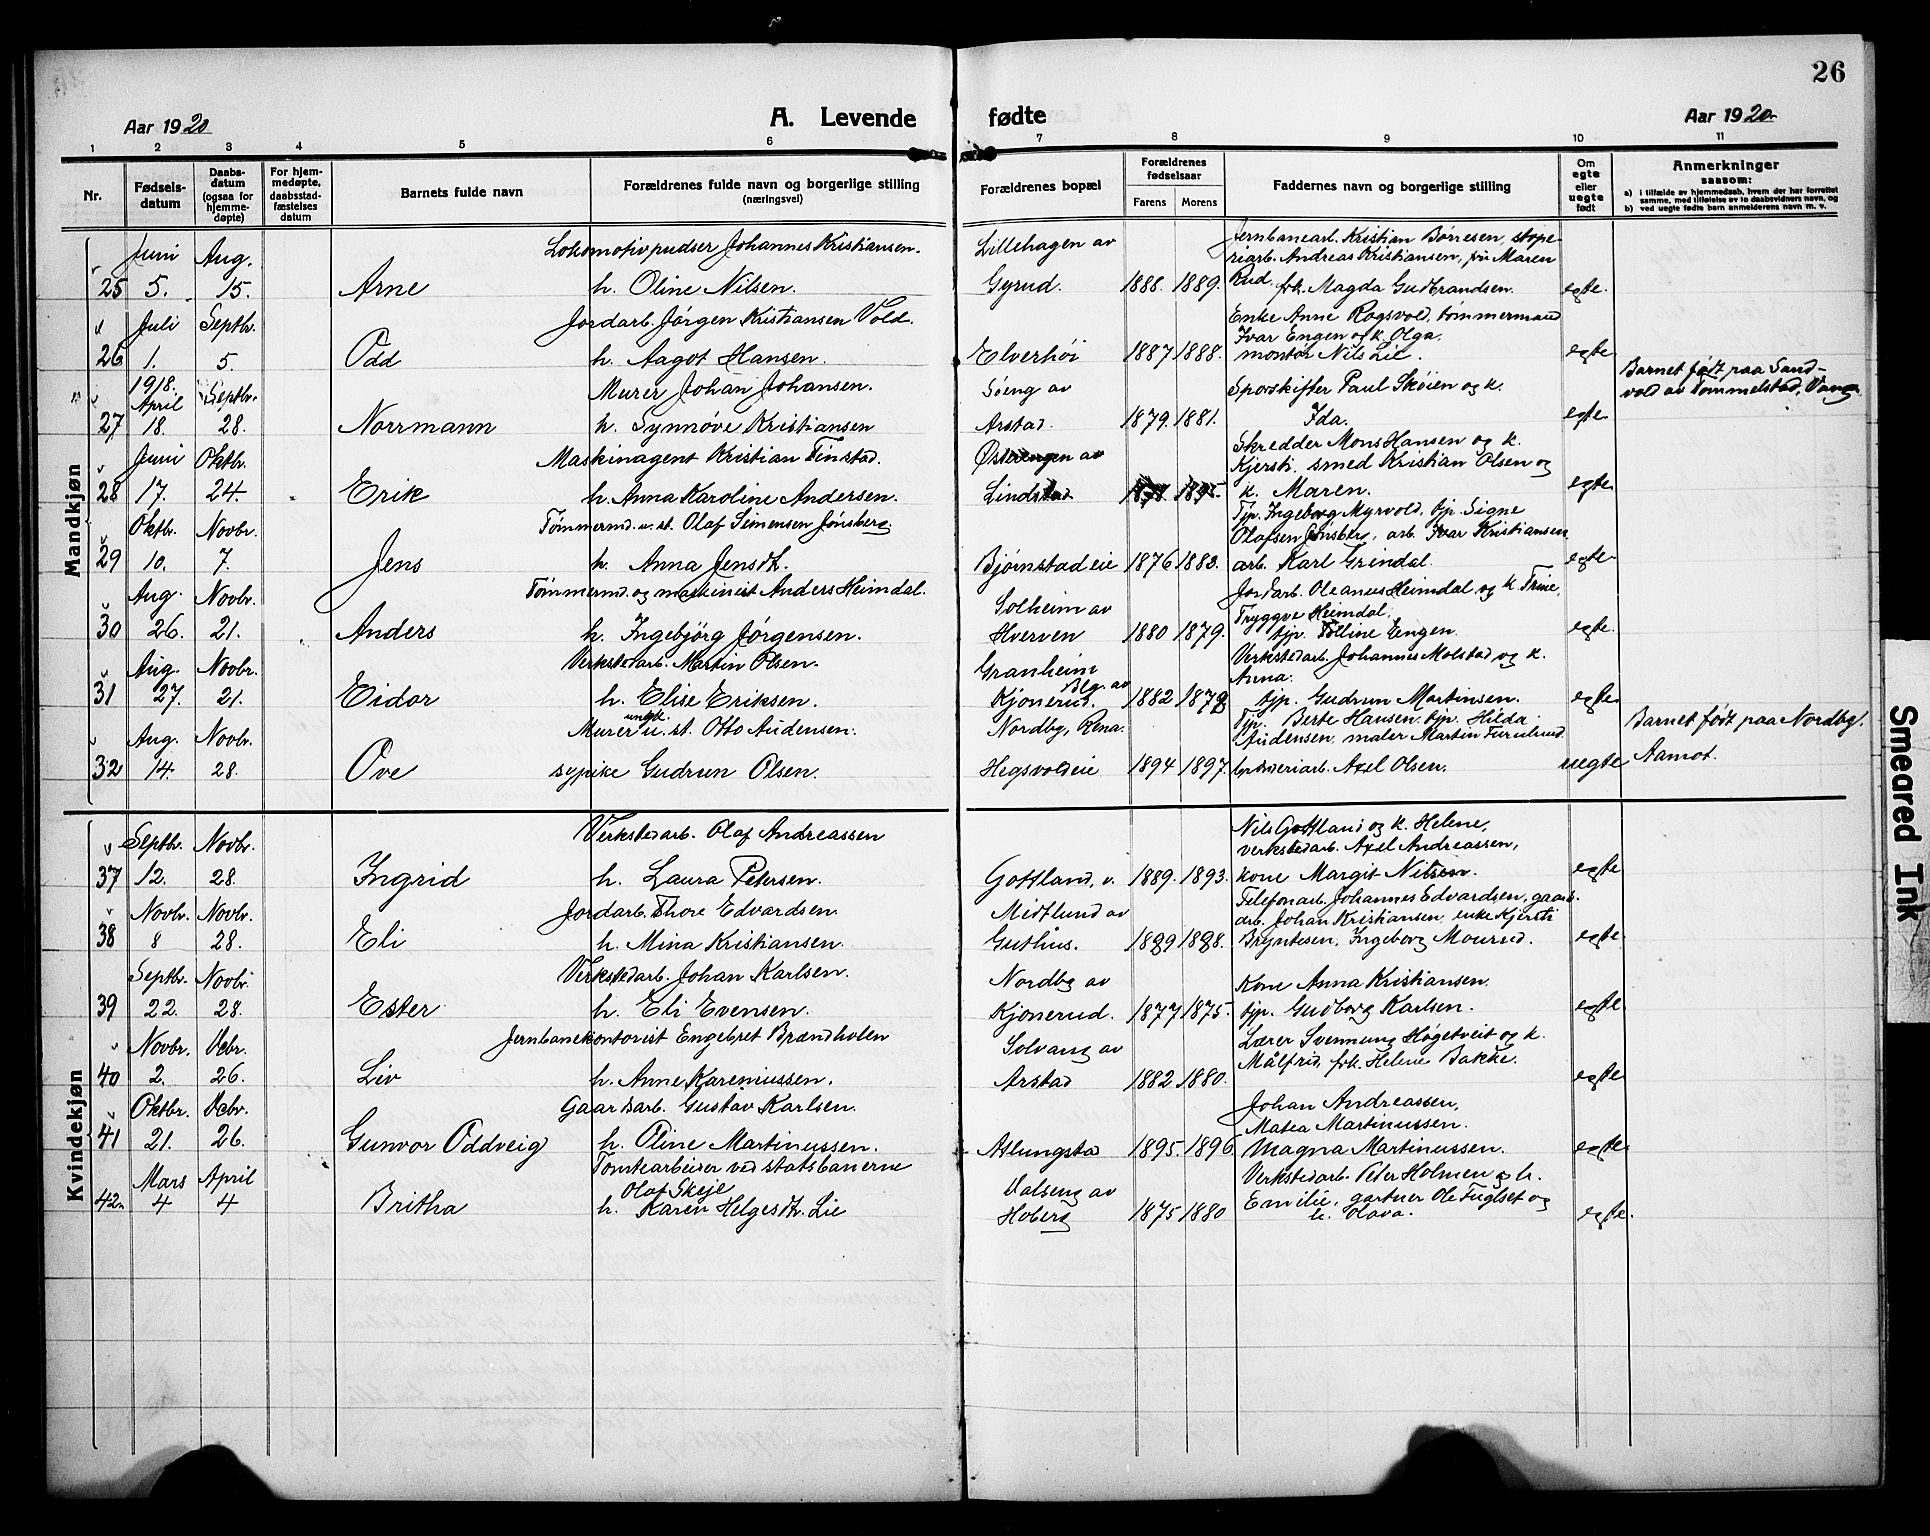 26
Aar 1920
A. Levende
fødte
Aar 1920
1 2 3 4 5 6 7 8 9 10 11
Nr.
Fødsels-
datum
Daabs-
datum
(ogsaa for
hjemme-
døpte)
For hjem-
medøpte,
daabsstad-
fæstelses
datum
Barnets fulde navn
Forældrenes fulde navn og borgerlige stilling
(næringsvei)
Forældrenes bopæl
Forældrenes
fødselsaar
Farens Morens
Faddernes navn og borgerlige stilling
Om
egte
eller
uegte
født
Anmerkninger
saasom:
a) i tilfælde av hjemmedaab, hvem der har forrettet
samme, med tilføielse av to daabsvidners navn, og
b) ved uegte fødte barn anmelderens navn m. v.
Mandkjøn
Juni Aug. Lokomotivpudser Johannes Kristiansen. Lillehagen av Jernbanearb. Kristian Børresen, støpe-
riarb. Andreas Kristiansen, fru Maren
25 5. 15. Arne h. Oline Nilsen. Gyrud. 1888. 1889. Rud. frk. Magda Gudbrandsen. egte.
Juli Septbr. Jordarb. Jørgen Kristiansen Vold. Enke Anne Rogsvold, tømmermand
Ivar Engen og k. Olga.
26 1. 5. Odd h. Aagot Hansen. Elverhöi 1887 1888. montör Nils Lie. egte
1918.
April Septbr. Murer Johan Johansen. Söeng av Sporskifter Paul Skøien og k. Barnet født paa Sand-
vold av Tommelstad, Vang
27 18. 28. Norrmann h. Synnøve Kristiansen Arstad. 1879. 1881. Ida. egte.
Juni Oktbr. Maskinagent Kristian Finstad. Østerengen av Skredder Mons Hansen og k.
Kjersti, smed Kristian Olsen og
28 17. 24. Erik h. Anna Karoline Andersen. Lindstad 1895. k. Maren. egte
Oktbr. Novbr. Tømmermd. u. st. Olaf Simensen Jønsberg Tjp. Ingeborg Myrvold, tjp. Signe
Olafsen Jønsberg, arb. Ivar Kristiansen
29 10. 7. Jens h. Anna Jensdt. Bjørnstadeie 1876 1883. arb. Karl Grindal. egte
Aug. Novbr. Tømmermd. og maskinist Anders Heimdal. Solheim av Jordarb. Oleanus Heimdal og k. Trine,
Tryggve Heimdal.
30 26. 21. Anders h. Ingebjörg Jørgensen. Hverven 1880 1879. tjp. Tolline Engen. egte.
Aug. Novbr. Verkstedarb. Martin Olsen. Granheim Verkstedarb. Johannes Molstad og k.
Blg. av Anna.
31 27. 21. Eidar h. Elise Eriksen. Kjonerud. 1882 1879 tjp. Gudrun Martinsen. egte
Aug. Novbr. Murer ungk. u. st. Otto Audensen. Nordby, Rena. Tjp. Berte Hansen, tjp. Hilda Barnet født paa Nordby,
Audensen, maler Martin Furulund
32 14. 28. Ove sypike Gudrun Olsen. Hegsvoldeie 1894 1897. Axel Olsen. uegte Aamot.
Kvindekjøn
Septbr. Novbr. Verkstedarb. Olaf Andreassen Nils Gottland og k. Helene,
verkstedarb. Axel Andreassen,
37 12. 28. Ingrid h. Laura Petersen. Gottland, v. 1889. 1893. kone Margit Nilsen. egte
Novbr. Novbr. Jordarb. Thore Edvardsen. Midtlund av Telefonarb. Johannes Edvardsen, gaards-
arb. Johan Kristiansen, enke Kjersti
38 8 28. Eli h. Mina Kristiansen. Guthus. 1889 1888. Bryntesen, Ingeborg Mourud. egte.
Septbr. Novbr. Verkstedarb. Johan Karlsen. Nordby av Kone Anna Kristiansen.
39 22. 28. Ester h. Eli Evensen. Kjonerud. 1877 1875. tjp. Gudborg Karlsen. egte
Novbr. Dcbr. Jernbanekontorist Engebret Brændholen Solvang av Lærer Svennung Høgetveit og k.
Målfrid, frk. Helene Bakke.
40 2. 26. Liv h. Anne Kareniussen. Arstad 1882 1880. egte
Oktbr. Dcbr. Gaardsarb. Gustav Karlsen. Johan Andreassen,
Matea Martinussen.
41 21. 26. Gunvor Oddveig h. Oline Martinussen. Atlungstad 1895. 1896. Magna Martinussen. egte
Mars April Tomtearbeider ved statsbanerne Dalseng av Verkstedarb. Peter Holmen og h.
Olaf Skeje Emilie, gartner Ole Fuglset og
42. 4 4 Britha h. Karen Helgesdt. Lie Hoberg 1875 1880 h. Olava. egte.
Smeared Ink